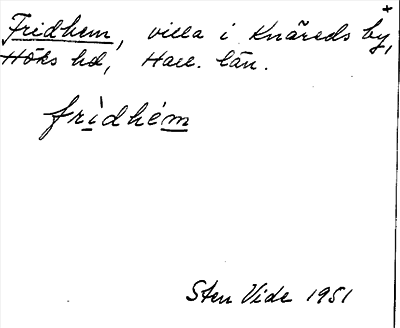 Fridhem, villa i Knäreds by, +
Höks hd, Hall. län.
frìdhém
Sten Vide 1951